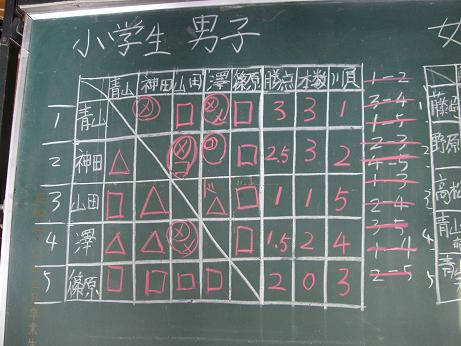 小学生 男子
青山 神田 山田 澤 篠原 勝点 本数 順
1 青山 □ □ 3 3 1
2 神田 △ □ 2.5 3 2
3 山田 □ △ △ □ 1 1 5
4 澤 △ △ □ 1.5 2 4
5 篠原 □ □ □ □ 2 0 3
1-2
3-4
1-5
2-3
4-5
1-3
2-4
3-5
1-4
2-5
女
1
野原 2
3
青山 4
5